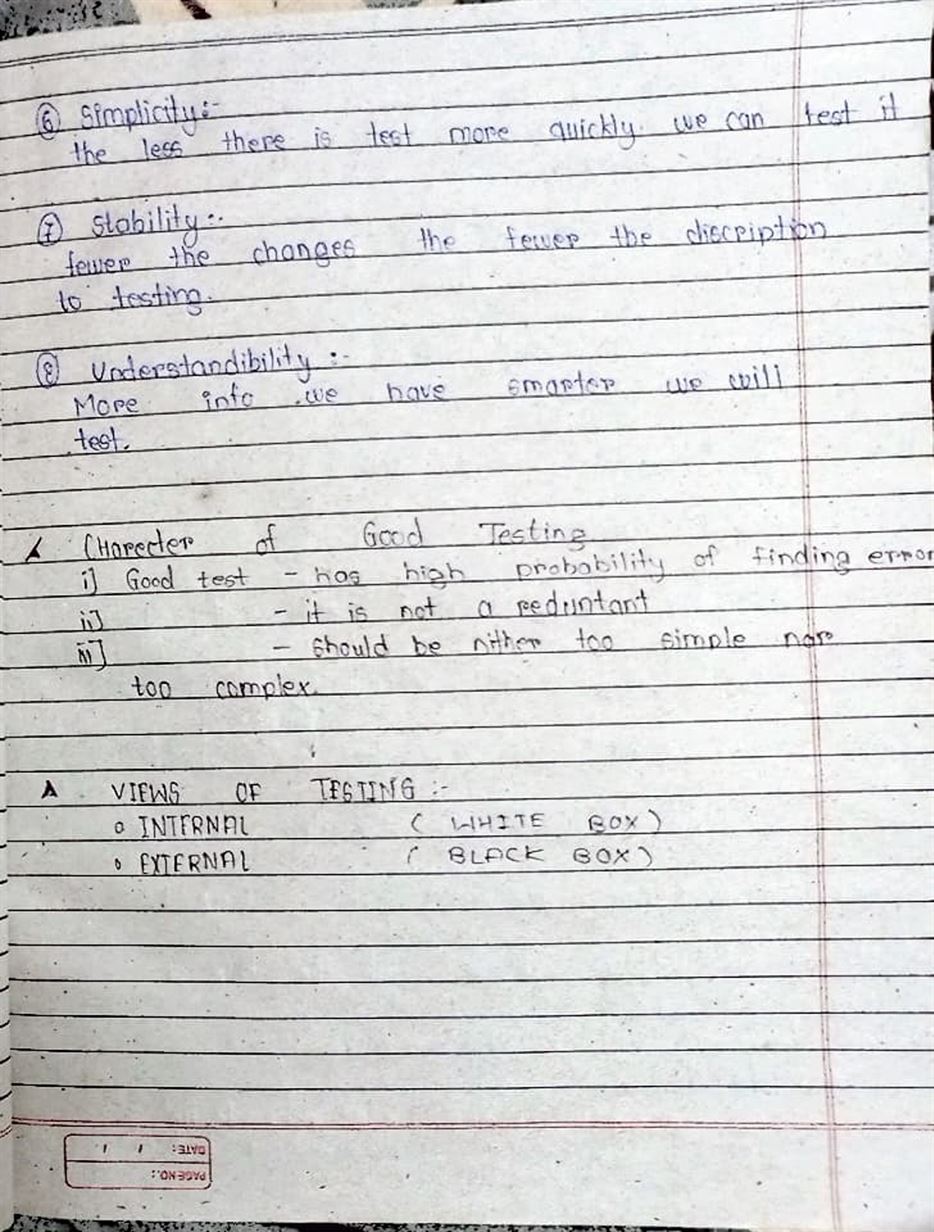 ⑥ Simplicity:-
the less there is test more quickly we can test it
⑦ Stability:-
fewer the changes the fewer the discription
to testing.
⑧ Understandibility :-
More info we have smarter we will
test.
Charecter of Good Testing
i] Good test - has high probability of finding error
ii] - it is not a reduntant
iii] - should be nither too simple nor
too complex.
VIEWS OF TESTING :-
o INTERNAL ( WHITE BOX )
o EXTERNAL ( BLACK BOX )
DATE: / /
PAGE NO.: